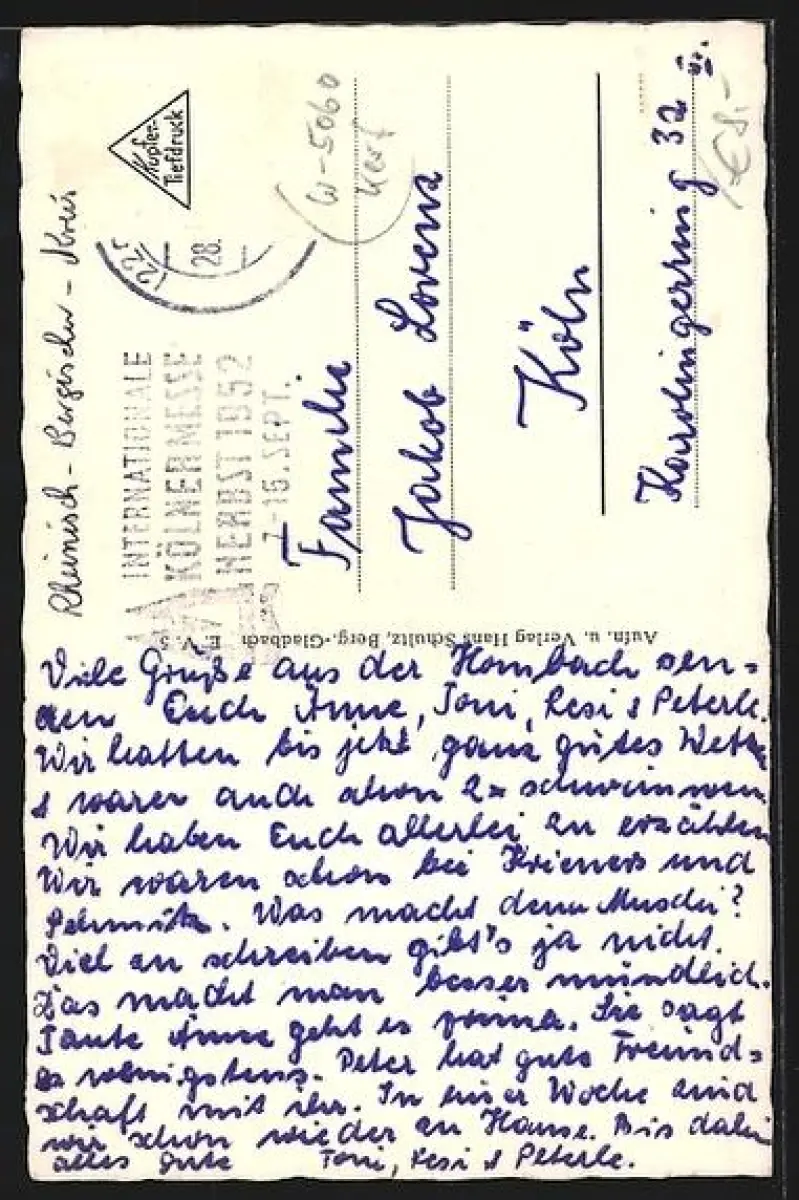 Rheinisch-Bergischer-Kreis
Kupfer-
Tiefdruck
(22c
28.
INTERNATIONALE
KÖLNER MESSE
HERBST 1952
7-16. SEPT.
W-5060
Familie
Jakob Lorenz
Köln
Karolingerring 32 III.
€ 8,-
Aufn. u. Verlag Hans Schultz, Berg.-Gladbach E. V. 5
Viele Grüße aus der Hombach sen-
den Euch Änne, Toni, Resi & Peterle.
Wir hatten bis jetzt ganz gutes Wetter
& waren auch schon 2x schwimmen.
Wir haben Euch allerlei zu erzählen
Wir waren schon bei Krieners und
Was macht denn Muschi?
Viel zu schreiben gibt's ja nicht.
Das macht man besser mündlich.
Tante Änne geht es prima. Sie sagt
es wenigstens. Peter hat gute Freund-
schaft mit ihr. In einer Woche sind
wir schon wieder zu Hause. Bis dahin
alles gute Toni, Resi & Peterle.